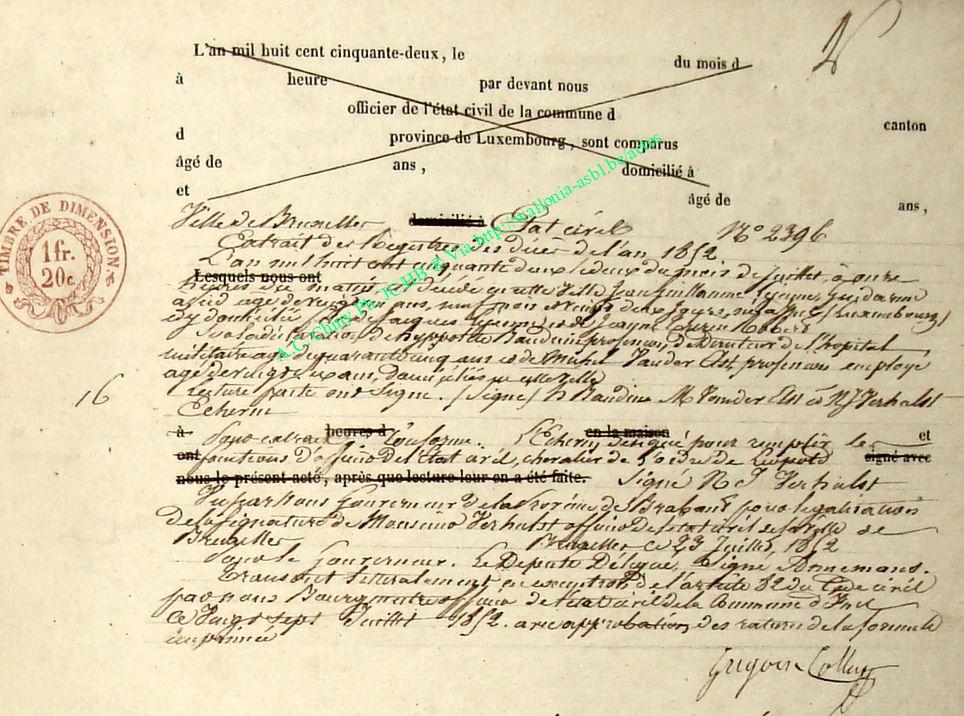 L'an mil huit cent cinquante-deux, le du mois d
à heure par devant nous
officier de l'état civil de la commune d canton
d province de Luxembourg, sont comparus
âgé de ans, domicilié à
et âgé de ans,
Ville de Bruxelles domicilié à Etat civil No 2396
Extrait des Registres des décès de l'an 1852
L'an mil huit cent cinquante deux le deux du mois de Juillet, à onze
Lesquels nous ont
heures du matin, est décédé en cette Ville Jean Guillaume gendarme
à pied âgé de ans, neuf mois et vingt deux jours, né à (Luxembourg)
et y domicilié, fils de Jacques et de
Sur la déclaration de hyppolite Baudin profession, de Directeur de l'hopital
militaire âgé de quarante cinq ans et de Michel Vander Elst, profession employé
âgé de vingt ans, domiciliés en cette Ville
16
Lecture faite ont signé. (Signé) h Baudin M Vander Elst et N J Verhulst
Echevin
à heures d en la maison et
Pour extrait conforme. L'Echevin délégué pour remplir les
ont fonctions d'officier de l'état civil, chevalier de l'ordre de Léopold signé avec
nous le présent acte, après que lecture leur en a été faite. Signé N J Verhulst
Vu par nous Gouverneur de la Province de Brabant pour légalisation
de la signature de Monsieur Verhulst officier de l'état civil de la ville de
Bruxelles Bruxelles ce 23 Juillet, 1852
Pour le Gouverneur. Le Député Délégué, Signé Annemans.
Transcrit littéralement en exécution de l'article 82 du Code civil
par nous Bourgmestre officier de l'état civil de la Commune d'
Ce Vingt sept Juillet 1852. avec approbation des ratures de la formule
imprimée
TIMBRE DE DIMENSION
1 fr.
20 c.
A.C. Chiny Ph. JC HB © Via http://wallonia-asbl.be/actes